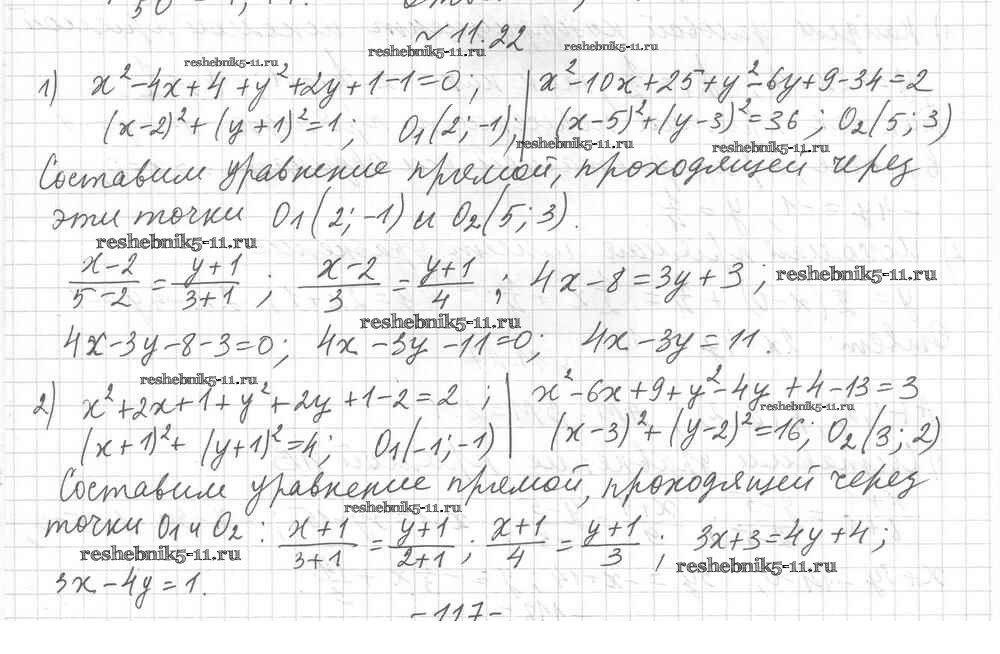 №11.22
reshebnik5-11.ru reshebnik5-11.ru
reshebnik5-11.ru
1) x²-4x+4+y²+2y+1-1=0; | x²-10x+25+y²-6y+9-34=2
(x-2)²+(y+1)²=1; O₁(2;-1); | (x-5)²+(y-3)²=36; O₂(5;3)
reshebnik5-11.ru reshebnik5-11.ru
Составим уравнение прямой, проходящей через
эти точки O₁(2;-1) и O₂(5;3).
reshebnik5-11.ru
(x-2)/(5-2)=(y+1)/(3+1); (x-2)/3=(y+1)/4; 4x-8=3y+3; reshebnik5-11.ru
reshebnik5-11.ru
4x-3y-8-3=0; 4x-3y-11=0; 4x-3y=11.
reshebnik5-11.ru
2) x²+2x+1+y²+2y+1-2=2; | x²-6x+9+y²-4y+4-13=3
reshebnik5-11.ru
(x+1)²+(y+1)²=4; O₁(-1;-1) | (x-3)²+(y-2)²=16; O₂(3;2)
Составим уравнение прямой, проходящей через
reshebnik5-11.ru
точки O₁ и O₂: (x+1)/(3+1)=(y+1)/(2+1); (x+1)/4=(y+1)/3; 3x+3=4y+4;
reshebnik5-11.ru reshebnik5-11.ru
3x-4y=1.
-117-